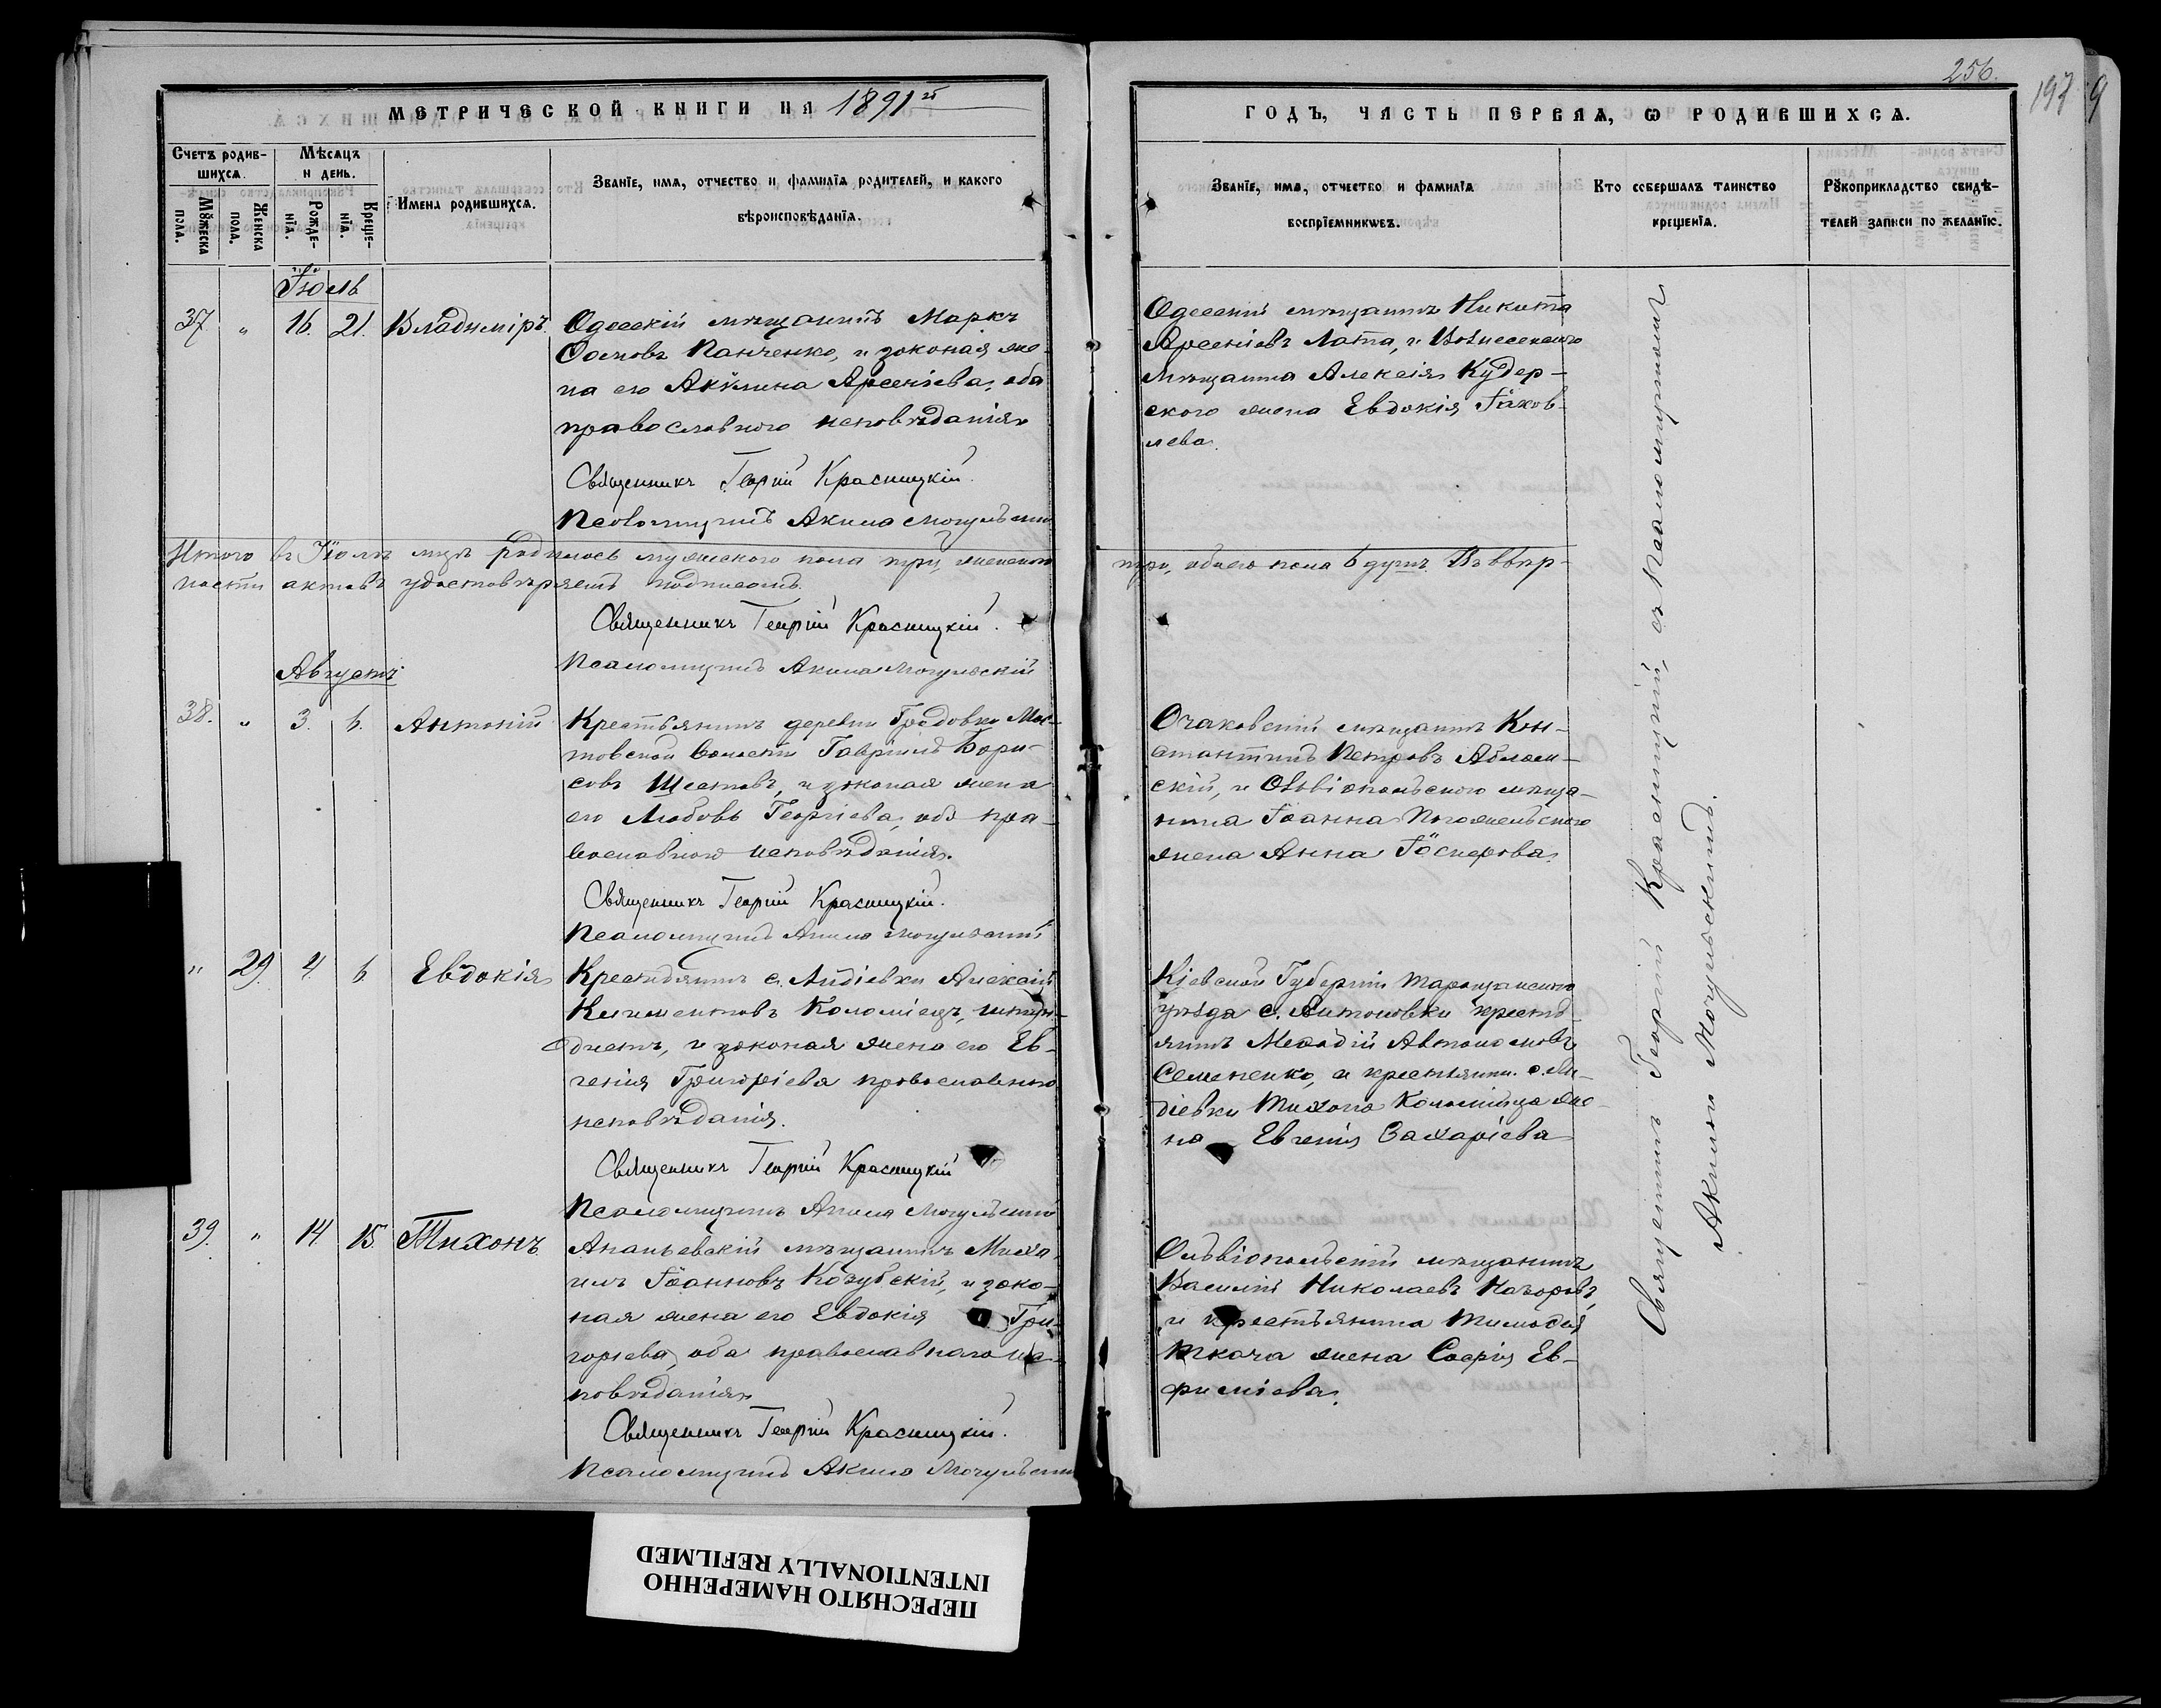 256.
197
9
МЕТРИЧЕСКОЙ КНИГИ НА 1891й
ГОДЪ, ЧАСТЬ ПЕРВАЯ, Ѡ РОДИВШИХСѦ.
Счетъ родив-
шихсѧ.
Мѣсѧцъ
и день.
Мꙋжеска
пола.
Женска
пола.
Рожде-
нїѧ.
Креще-
нїѧ.
Имена родившихсѧ.
Званїе, имѧ, отчество и фамилїѧ родителей, и какого
вѣроисповѣданїѧ.
Званїе, имѧ, отчество и фамилїѧ
воспрїемникѡвъ.
Кто совершалъ таинство
крещенїѧ.
Рꙋкоприкладство свидѣ-
телей записи по желанїю.
Іюль
37 " 16. 21. Владиміръ.
Одесскій мѣщанинъ Маркъ
Панченко, и законая же-
на его Акилина Арсеніева, оба
православного исповѣданія
Священникъ Георгій Красницкій.
Псаломщикъ Акила Могульскій
Одесскій мѣщанинъ Никита
Арсеніевъ Лата, и Вознесенского
мѣщанина Алексія Кудер-
ского жена Евдокія Іаков-
лева.
Итого въ Іюлѣ мцѣ родилось мужеского пола три, женского
три, обоего пола 6 душъ. Въ вѣр-
ности актовъ удостовѣряемъ подписомъ.
Священникъ Георгій Красницкій.
Псаломщикъ Акила Могульскій
Августъ
38. " 3. 6. Антоній
Крестьянинъ деревни Градовки Мос-
товской волости Гавріилъ Бори-
совъ Шестовъ, и законая жена
его Любовь Георгіева, оба пра-
вославного исповѣданія.
Священникъ Георгій Красницкій.
Псаломщикъ Акила Могульскій
Очаковскій мѣщанинъ Кон-
стантинъ Петровъ
скій, и Ольвіопольского мѣща-
нина Іоанна
жена Анна
" 29. 4. 6 Евдокія
Крестьянинъ с. Лидіевки Алексій
Климентовъ Коломіецъ,
и законая жена его Ев-
генія Григоріева православного
исповѣданія.
Священникъ Георгій Красницкій
Псаломщикъ Акила Могульскій
Кіевской Губерніи Таращанского
уѣзда с. Антоновки крестья-
нинъ Меѳодій Автономовъ
Семененко, и крестьянин. с. Ли-
діевки Тихона Коломійца же-
на Евгенія Захаріева
39. " 14. 15. Тихонъ
Ананьевскій мѣщанинъ Миха-
илъ Іоанновъ Козубскій, и зако-
ная жена его Евдокія Гри-
горіева, оба православнаго ис-
повѣданія
Священникъ Георгій Красницкій.
Псаломщикъ Акила Могульскій
Ольвіопольскій мѣщанинъ
Василій Николаевъ
и крестьянина Тимоѳея
Ткача жена Софія Ев-
фиміева.
Священникъ Георгій Красницкій, съ Псаломщикомъ
Акилою Могульскимъ.
ПЕРЕСНЯТО НАМЕРЕННО
INTENTIONALLY REFILMED